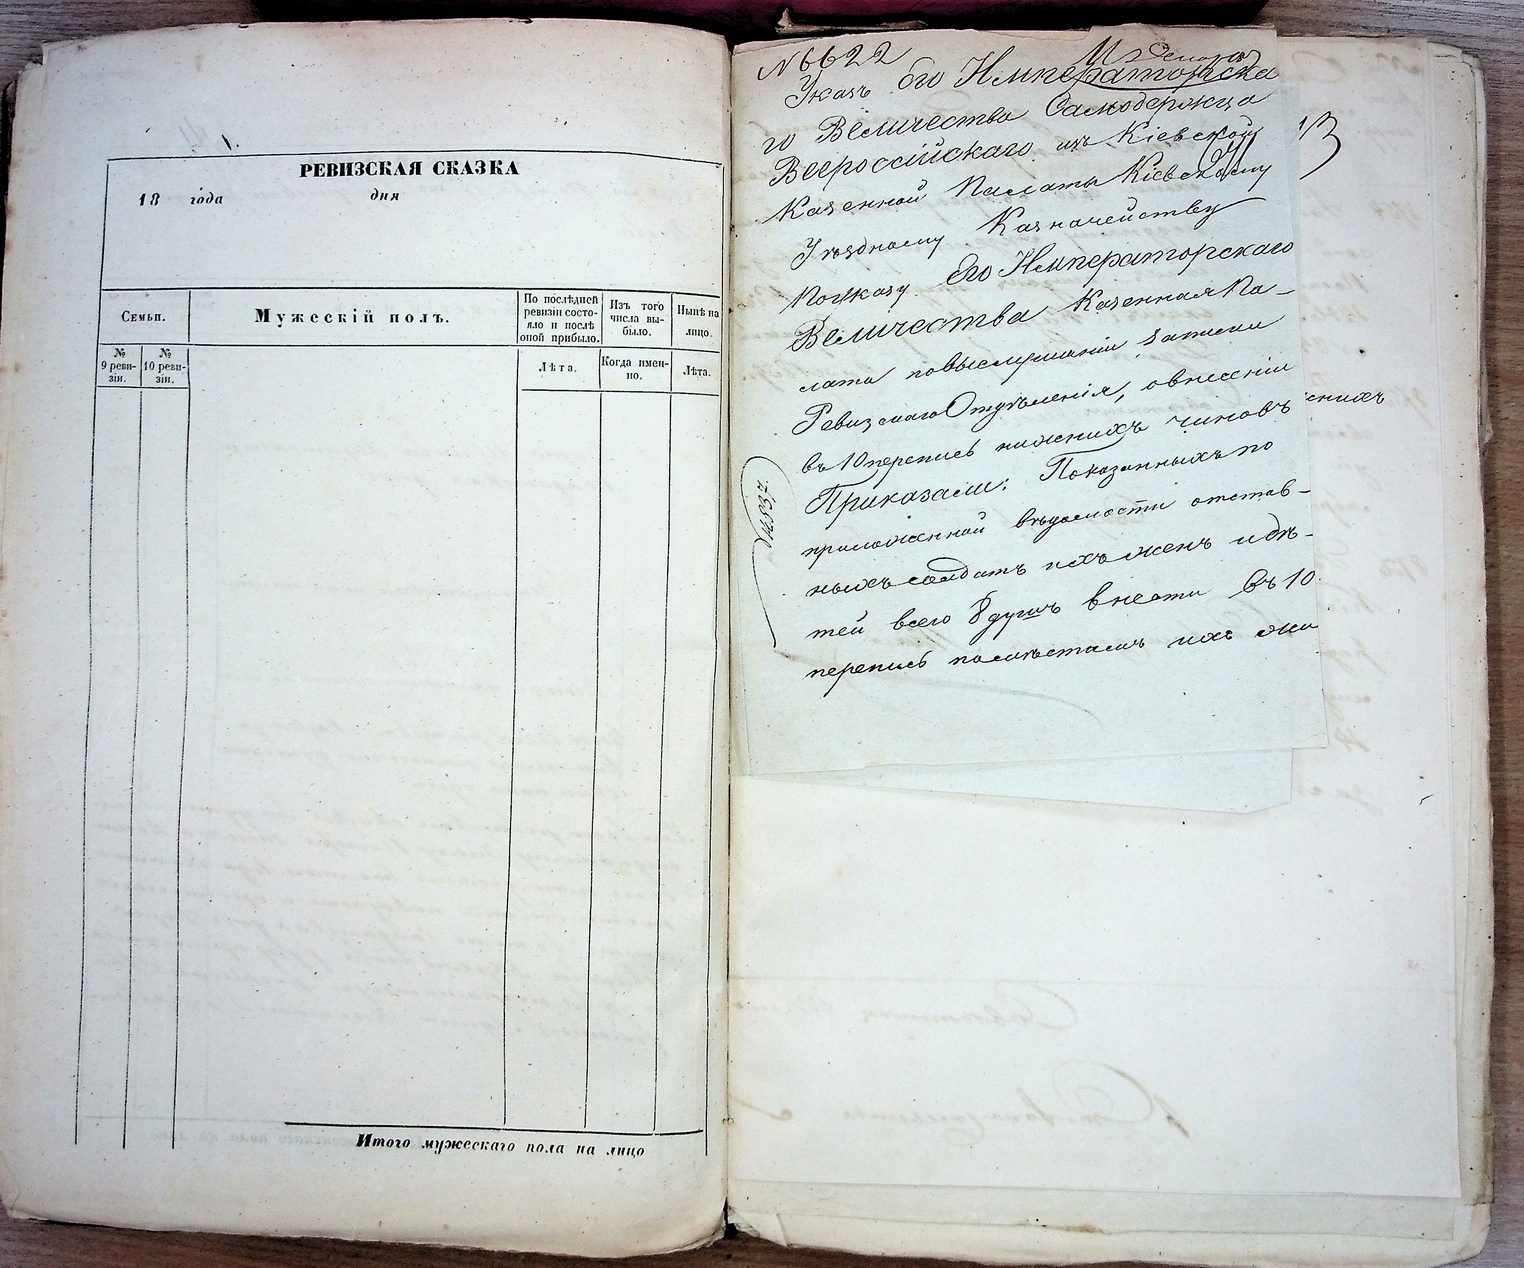 РЕВИЗСКАЯ СКАЗКА
18 года дня
Семьи.
Мужескій полъ.
По послѣдней
ревизіи состо-
яло и послѣ
оной прибыло.
Изъ того
числа вы-
было.
Нынѣ на
лицо.
№
9 реви-
зіи.
№
10 реви-
зіи.
Лѣта.
Когда имен-
но.
Лѣта.
Итого мужескаго пола на лицо
№ 6622
Указъ Его Императорска
го Величества Самодержца
Всероссійскаго изъ Кіевской
Казенной Палаты Кіевскому
Уѣздному Казначейству
По Указу Его Императорскаго
Величества Казенная Па-
лата по выслушаніи записки
Ревизскаго Отдѣленія, о внесеніи
въ 10 перепись нижнихъ чиновъ
Приказали: Показанныхъ по
приложенной вѣдомости отстав-
ныхъ солдатъ ихъ женъ и дѣ-
тей всего 8 душъ внести въ 10
перепись по мѣстамъ ихъ жи